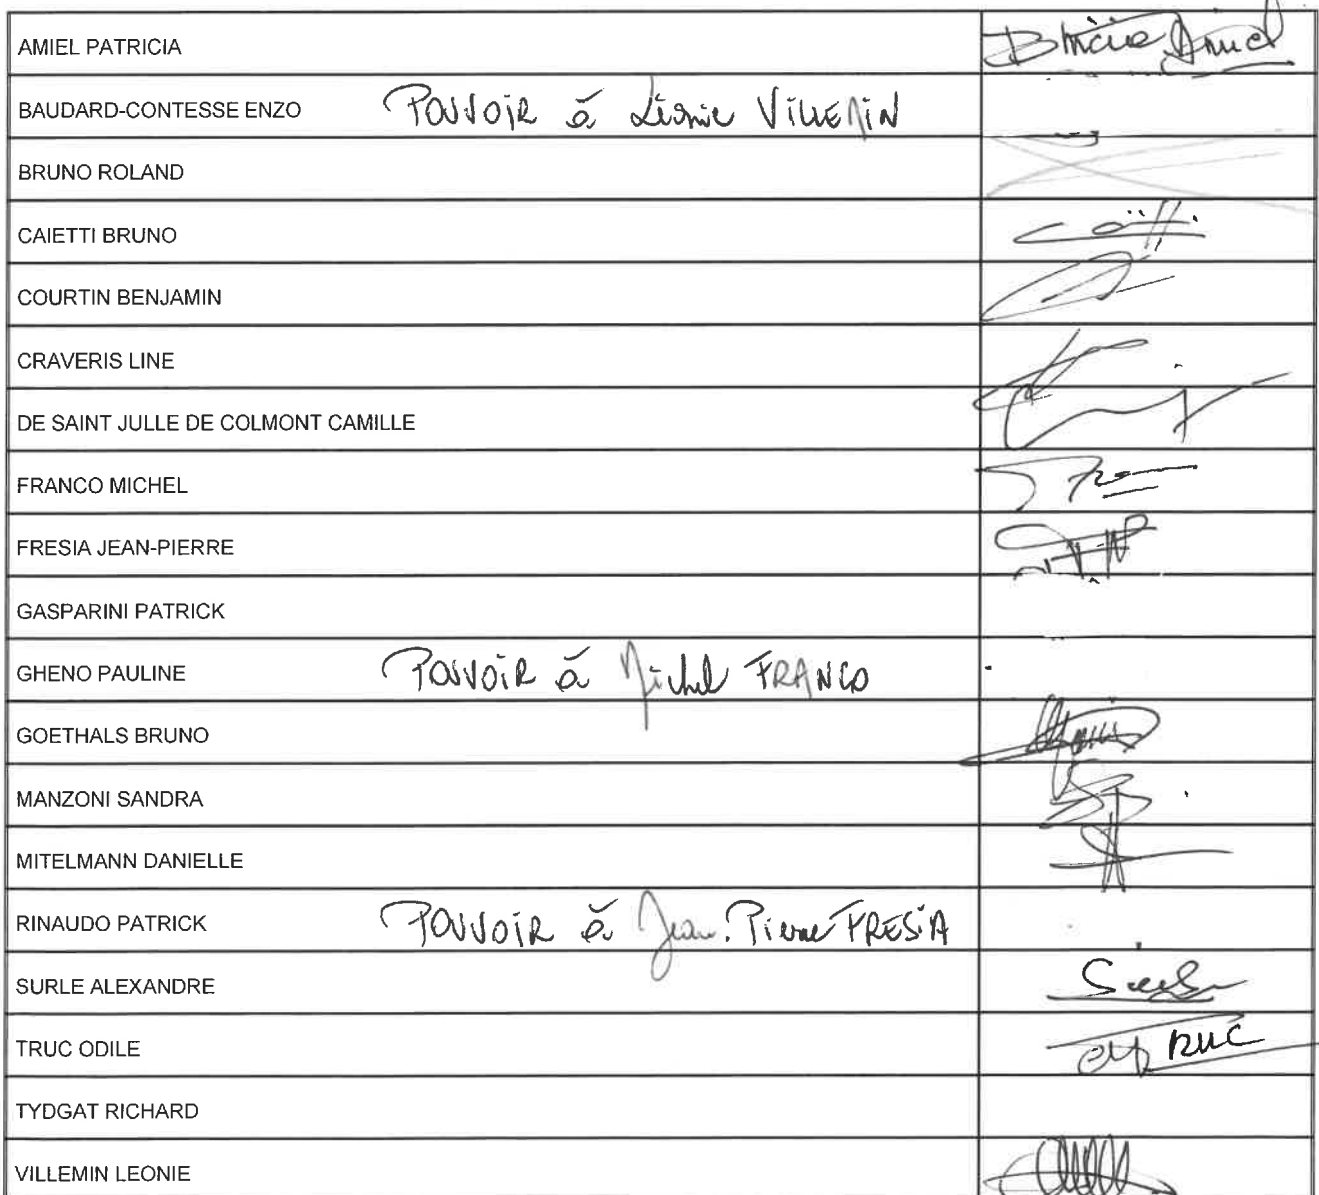 AMIEL PATRICIA Patricia Amiel
BAUDARD-CONTESSE ENZO Pouvoir à Léonie VILLEMIN
BRUNO ROLAND
CAIETTI BRUNO
COURTIN BENJAMIN
CRAVERIS LINE
DE SAINT JULLE DE COLMONT CAMILLE
FRANCO MICHEL
FRESIA JEAN-PIERRE
GASPARINI PATRICK
GHENO PAULINE Pouvoir à Michel FRANCO
GOETHALS BRUNO
MANZONI SANDRA
MITELMANN DANIELLE
RINAUDO PATRICK Pouvoir à Jean-Pierre FRESIA
SURLE ALEXANDRE Surle
TRUC ODILE TRUC
TYDGAT RICHARD
VILLEMIN LEONIE